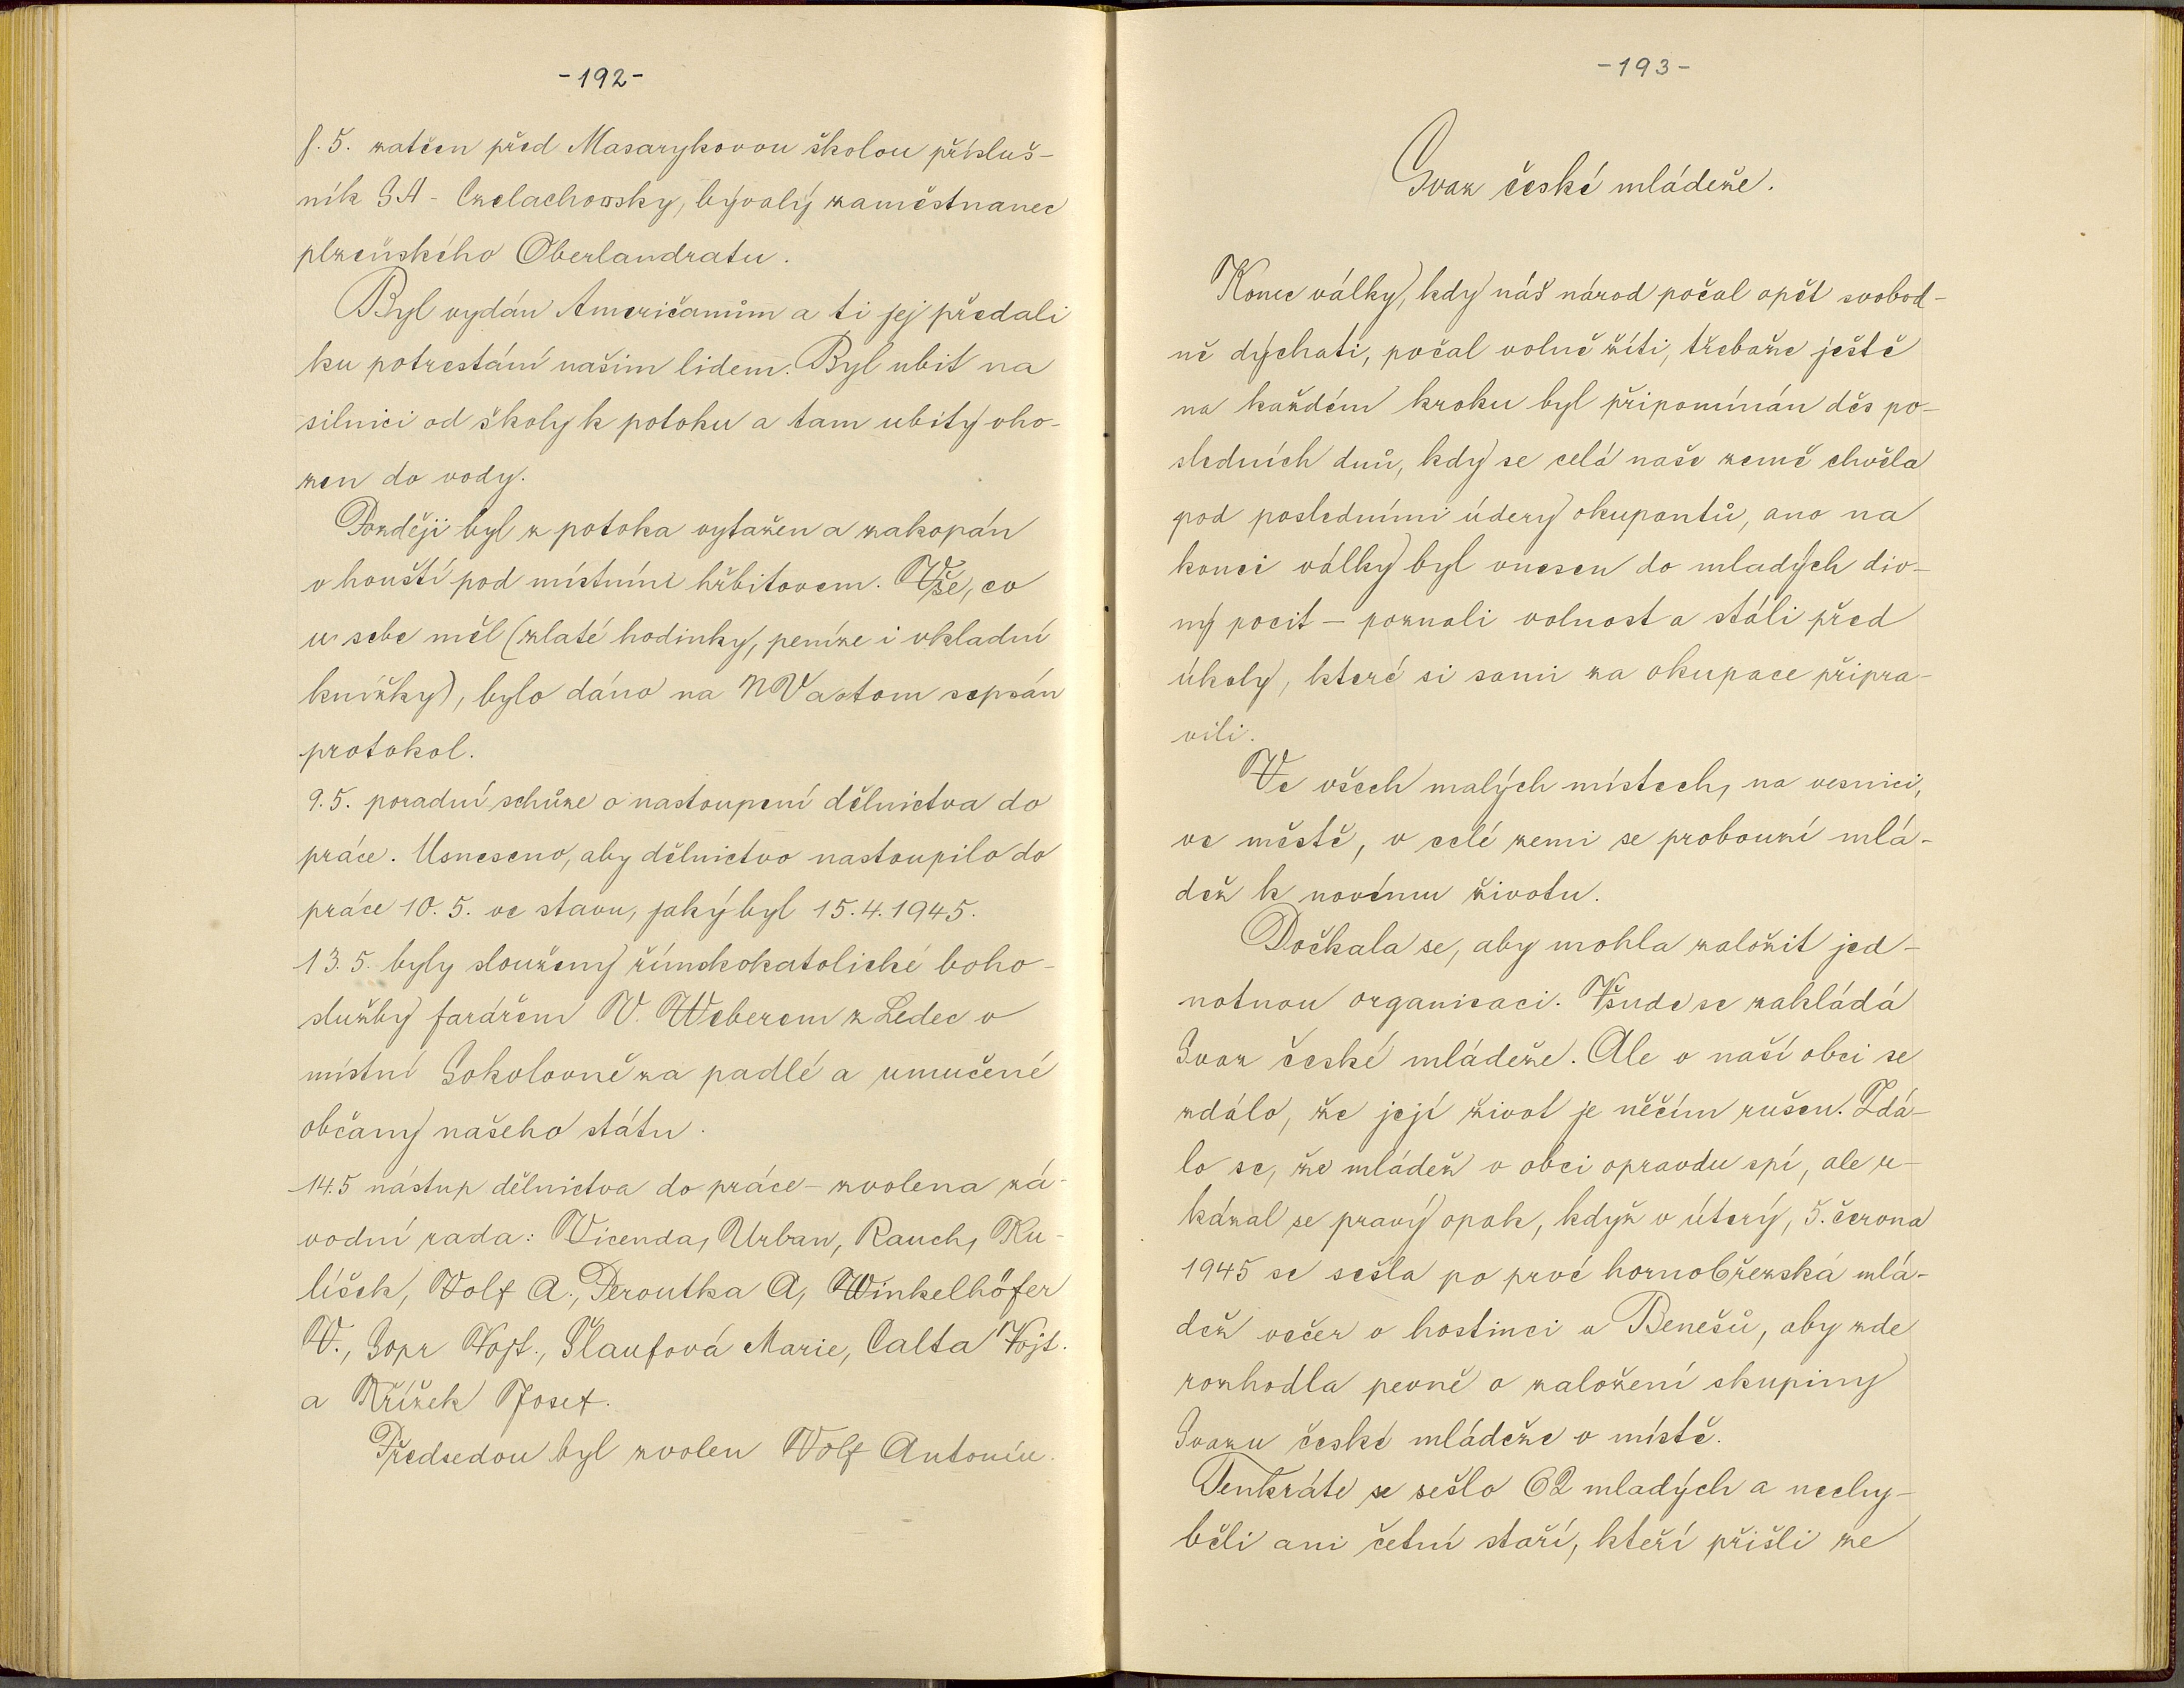 -192-
8.5. zatčen před Masarykovou školou přísluš-
ník SA - Czelachowsky, bývalý zaměstnanec
plzeňského Oberlandratu.
Byl vydán Američanům a ti jej předali
ku potrestání našim lidem. Byl ubit na
silnici od školy k potoku a tam ubitý vho-
zen do vody.
Později byl z potoka vytažen a zakopán
v houští pod místním hřbitovem. Vše, co
u sebe měl (zlaté hodinky, peníze i vkladní
knížky), bylo dáno na NV a o tom sepsán
protokol.
9.5. poradní schůze o nastoupení dělnictva do
práce. Usneseno, aby dělnictvo nastoupilo do
práce 10.5. ve stavu, jaký byl 15.4.1945.
13.5. byly slouženy římskokatolické boho-
služby farářem V. Weberem z Ledec v
místní Sokolovně za padlé a umučené
občany našeho státu.
14.5 nástup dělnictva do práce - zvolena zá-
vodní rada: Vicenda, Urban, Rauch, Ku-
líšek, Wolf A., Peroutka A, Winkelhöfer
V., Sopr Vojt., Šlaufová Marie, Calta Vojt.
a Křížek Josef.
Předsedou byl zvolen Wolf Antonín.
-193-
Svaz české mládeže.
Konec války, kdy náš národ počal opět svobod-
ně dýchati, počal volně žíti, třebaže ještě
na každém kroku byl připomínán děs po-
sledních dnů, kdy se celá naše země chvěla
pod posledními údery okupantů, ano na
konci války byl vnesen do mladých div-
ný pocit - poznali volnost a stáli před
úkoly, které si sami za okupace připra-
vili.
Ve všech malých místech, na vesnici,
ve městě, v celé zemi se probouzí mlá-
dež k novému životu.
Dočkala se, aby mohla založit jed-
notnou organisaci. Všude se zakládá
Svaz české mládeže. Ale v naší obci se
zdálo, že její život je něčím rušen. Zdá-
lo se, že mládež v obci opravdu spí, ale u-
kázal se pravý opak, když v úterý, 5. června
1945 se sešla po prvé hornobřezská mlá-
dež večer v hostinci u Benešů, aby zde
rozhodla pevně o založení skupiny
Svazu české mládeže v místě.
Tenkráte se sešlo 62 mladých a nechy-
běli ani četní staří, kteří přišli ze